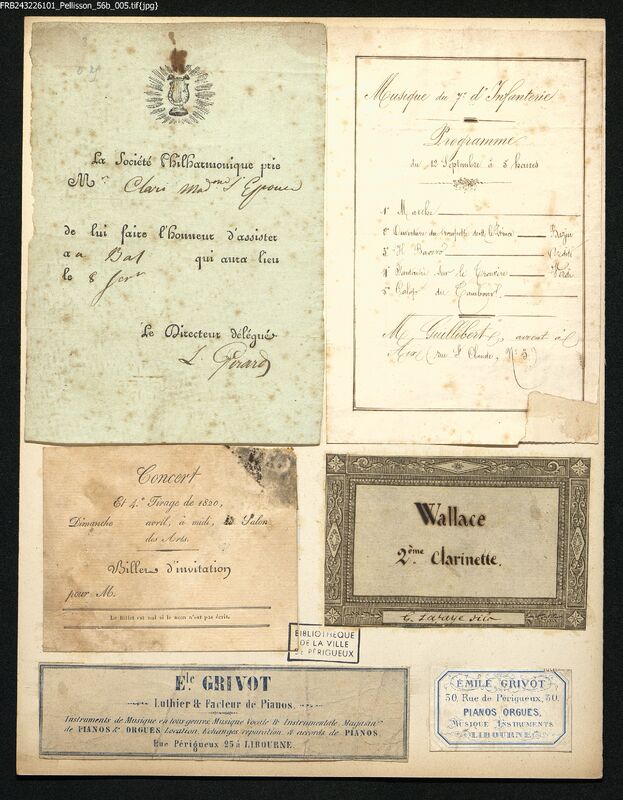 FRB243226101_Pellisson_56b_005.tif{jpg}
La Société Philharmonique prie
Mr Clari Madme S Epouse
de lui faire l'honneur d'assister
a u Bal qui aura lieu
le 8
Le Directeur délégué
L. Gérard
Musique du 7e d'Infanterie
Programme
du 12 Septembre à 8 heures
1° Marche
2° Ouverture du Trompette de Bazin
3° Il Verdi
4° Fantaisie sur le Trouvère Verdi
5° Galop du Tambour
M. Guillibert, avocat à
Aix (rue St Claude, N° 3)
Concert
Et 4.e Tirage de 1820,
Dimanche avril, à midi, Salon
des Arts.
Billet d'invitation
pour M.
Le Billet est nul si le nom n'est pas écrit.
Wallace
2ème Clarinette.
BIBLIOTHÈQUE
DE LA VILLE
DE PÉRIGUEUX
Ele GRIVOT
Luthier & Facteur de Pianos.
Instruments de Musique en tous genres Musique Vocale & Instrumentale Magasin
de PIANOS & ORGUES Location, Echanges, réparation & accords de PIANOS
Rue Périgueux 25 à LIBOURNE.
ÉMILE GRIVOT
30, Rue de Périgueux, 30,
PIANOS ORGUES,
MUSIQUE INSTRUMENTS
LIBOURNE